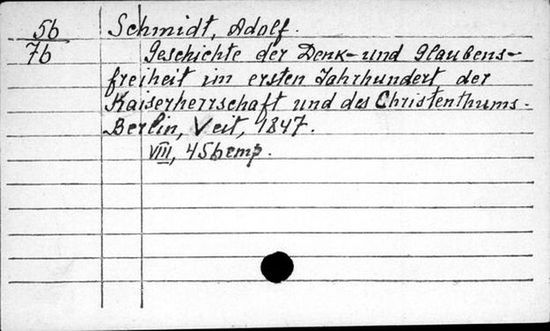 56 Schmidt, Adolf.
76 Geschichte der Denk- und Glaubens-
freiheit im ersten Jahrhundert der
Kaiserherrschaft und des Christenthums.
Berlin, Veit, 1847.
VIII, 456